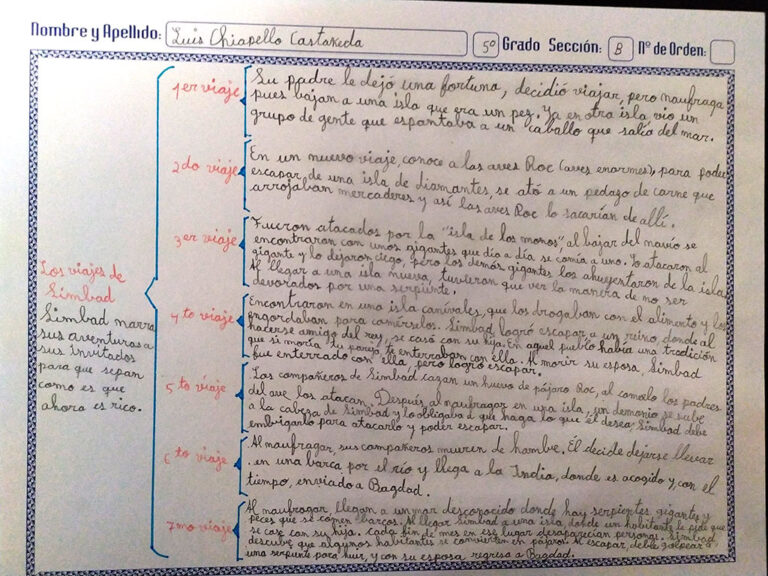 Nombre y Apellido: Luis Chiapello Castañeda 5º Grado Sección: B Nº de Orden:
Los viajes de
Simbad
Simbad narra
sus aventuras a
sus invitados
para que sepan
como es que
ahora es rico.
1er viaje
Su padre le dejó una fortuna, decidió viajar, pero naufraga
pues bajan a una isla que era un pez. Ya en otra isla vio un
grupo de gente que espantaba a un caballo que salía del mar.
2do viaje
En un nuevo viaje, conoce a las aves Roc (aves enormes), para poder
escapar de una isla de diamantes, se ató a un pedazo de carne que
arrojaban mercaderes y así las aves Roc lo sacarían de allí.
3er viaje
Fueron atacados por la "isla de los monos", al bajar del navío se
encontraron con unos gigantes que día a día se comía a uno. Yo atacaron al
gigante y lo dejaron ciego, pero los demás gigantes los ahuyentaron de la isla
Al llegar a una isla nueva, tuvieron que ver la manera de no ser
devorados por una serpiente.
4to viaje
Encontraron en una isla caníbales, que los drogaban con el alimento y los
engordaban para comérselos. Simbad logró escapar a un reino, donde al
hacerse amigo del rey, se casó con su hija. En aquel pueblo había una tradición
que si moría tu pareja, te enterraban con ella. Al morir su esposa, Simbad
fue enterrado con ella, pero logró escapar.
5to viaje
Los compañeros de Simbad cazan un huevo de pájaro Roc, al comalo los padres
del ave los atacan. Después al naufragar en una isla, un demonio se sube
a la cabeza de Simbad y lo obligaba a que haga lo que el desea, Simbad debe
embriagarlo para atacarlo y poder escapar.
6to viaje
Al naufragar, sus compañeros mueren de hambre. Él decide dejarse llevar
en una barca por el río y llega a la India, donde es acogido y con el
tiempo, enviado a Bagdad.
7mo viaje
Al naufragar, llegan a un mar desconocido donde hay serpientes gigantes y
peces que se comen barcos. Al llegar Simbad a una isla, donde un habitante le pide que
se case con su hija. Cada fin de mes en ese lugar desaparecían personas. Simbad
descubre que algunos habitantes se convierten en pájaros. Al escapar, debe golpear a
una serpiente para huir, y con su esposa regresa a Bagdad.